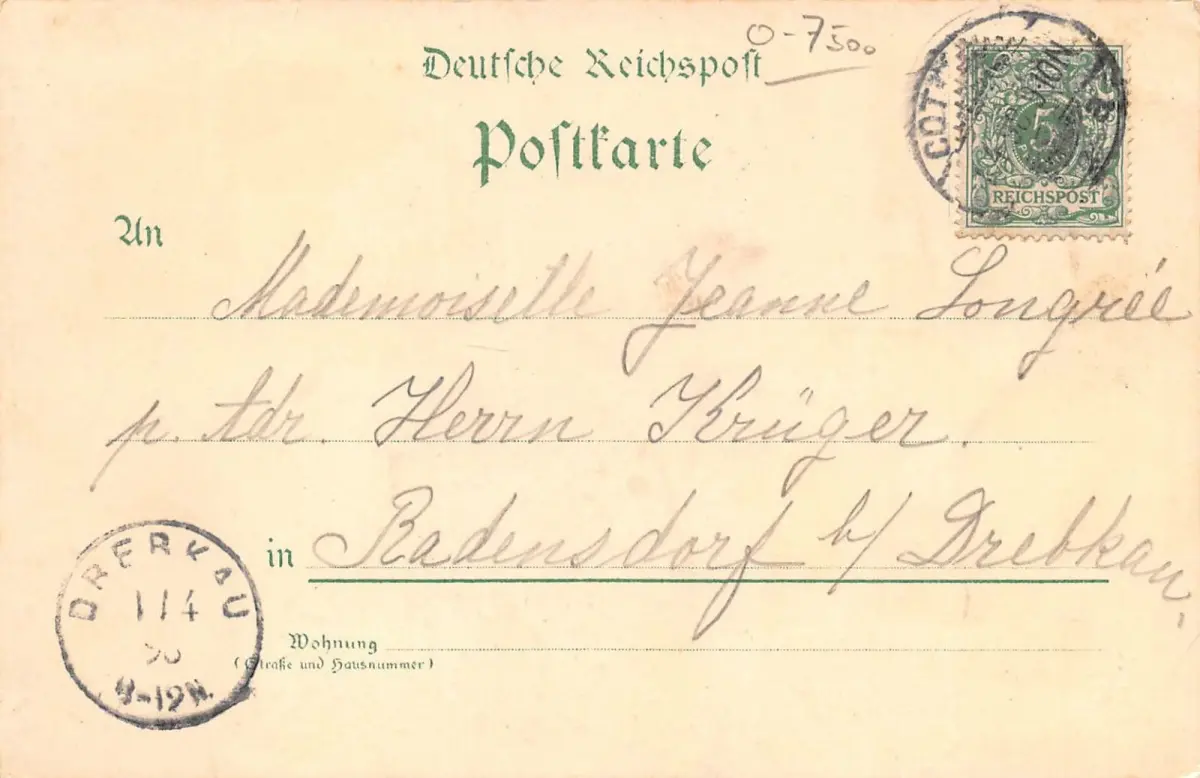 0-7500
Deutsche Reichspost
Postkarte
COTT
5
REICHSPOST
An
Mademoiselle Jeanne Longrée
p. Adr. Herrn Krüger.
in Radensdorf b/ Drebkau.
DREBKAU
1/4
9-12N.
Wohnung
(Straße und Hausnummer)